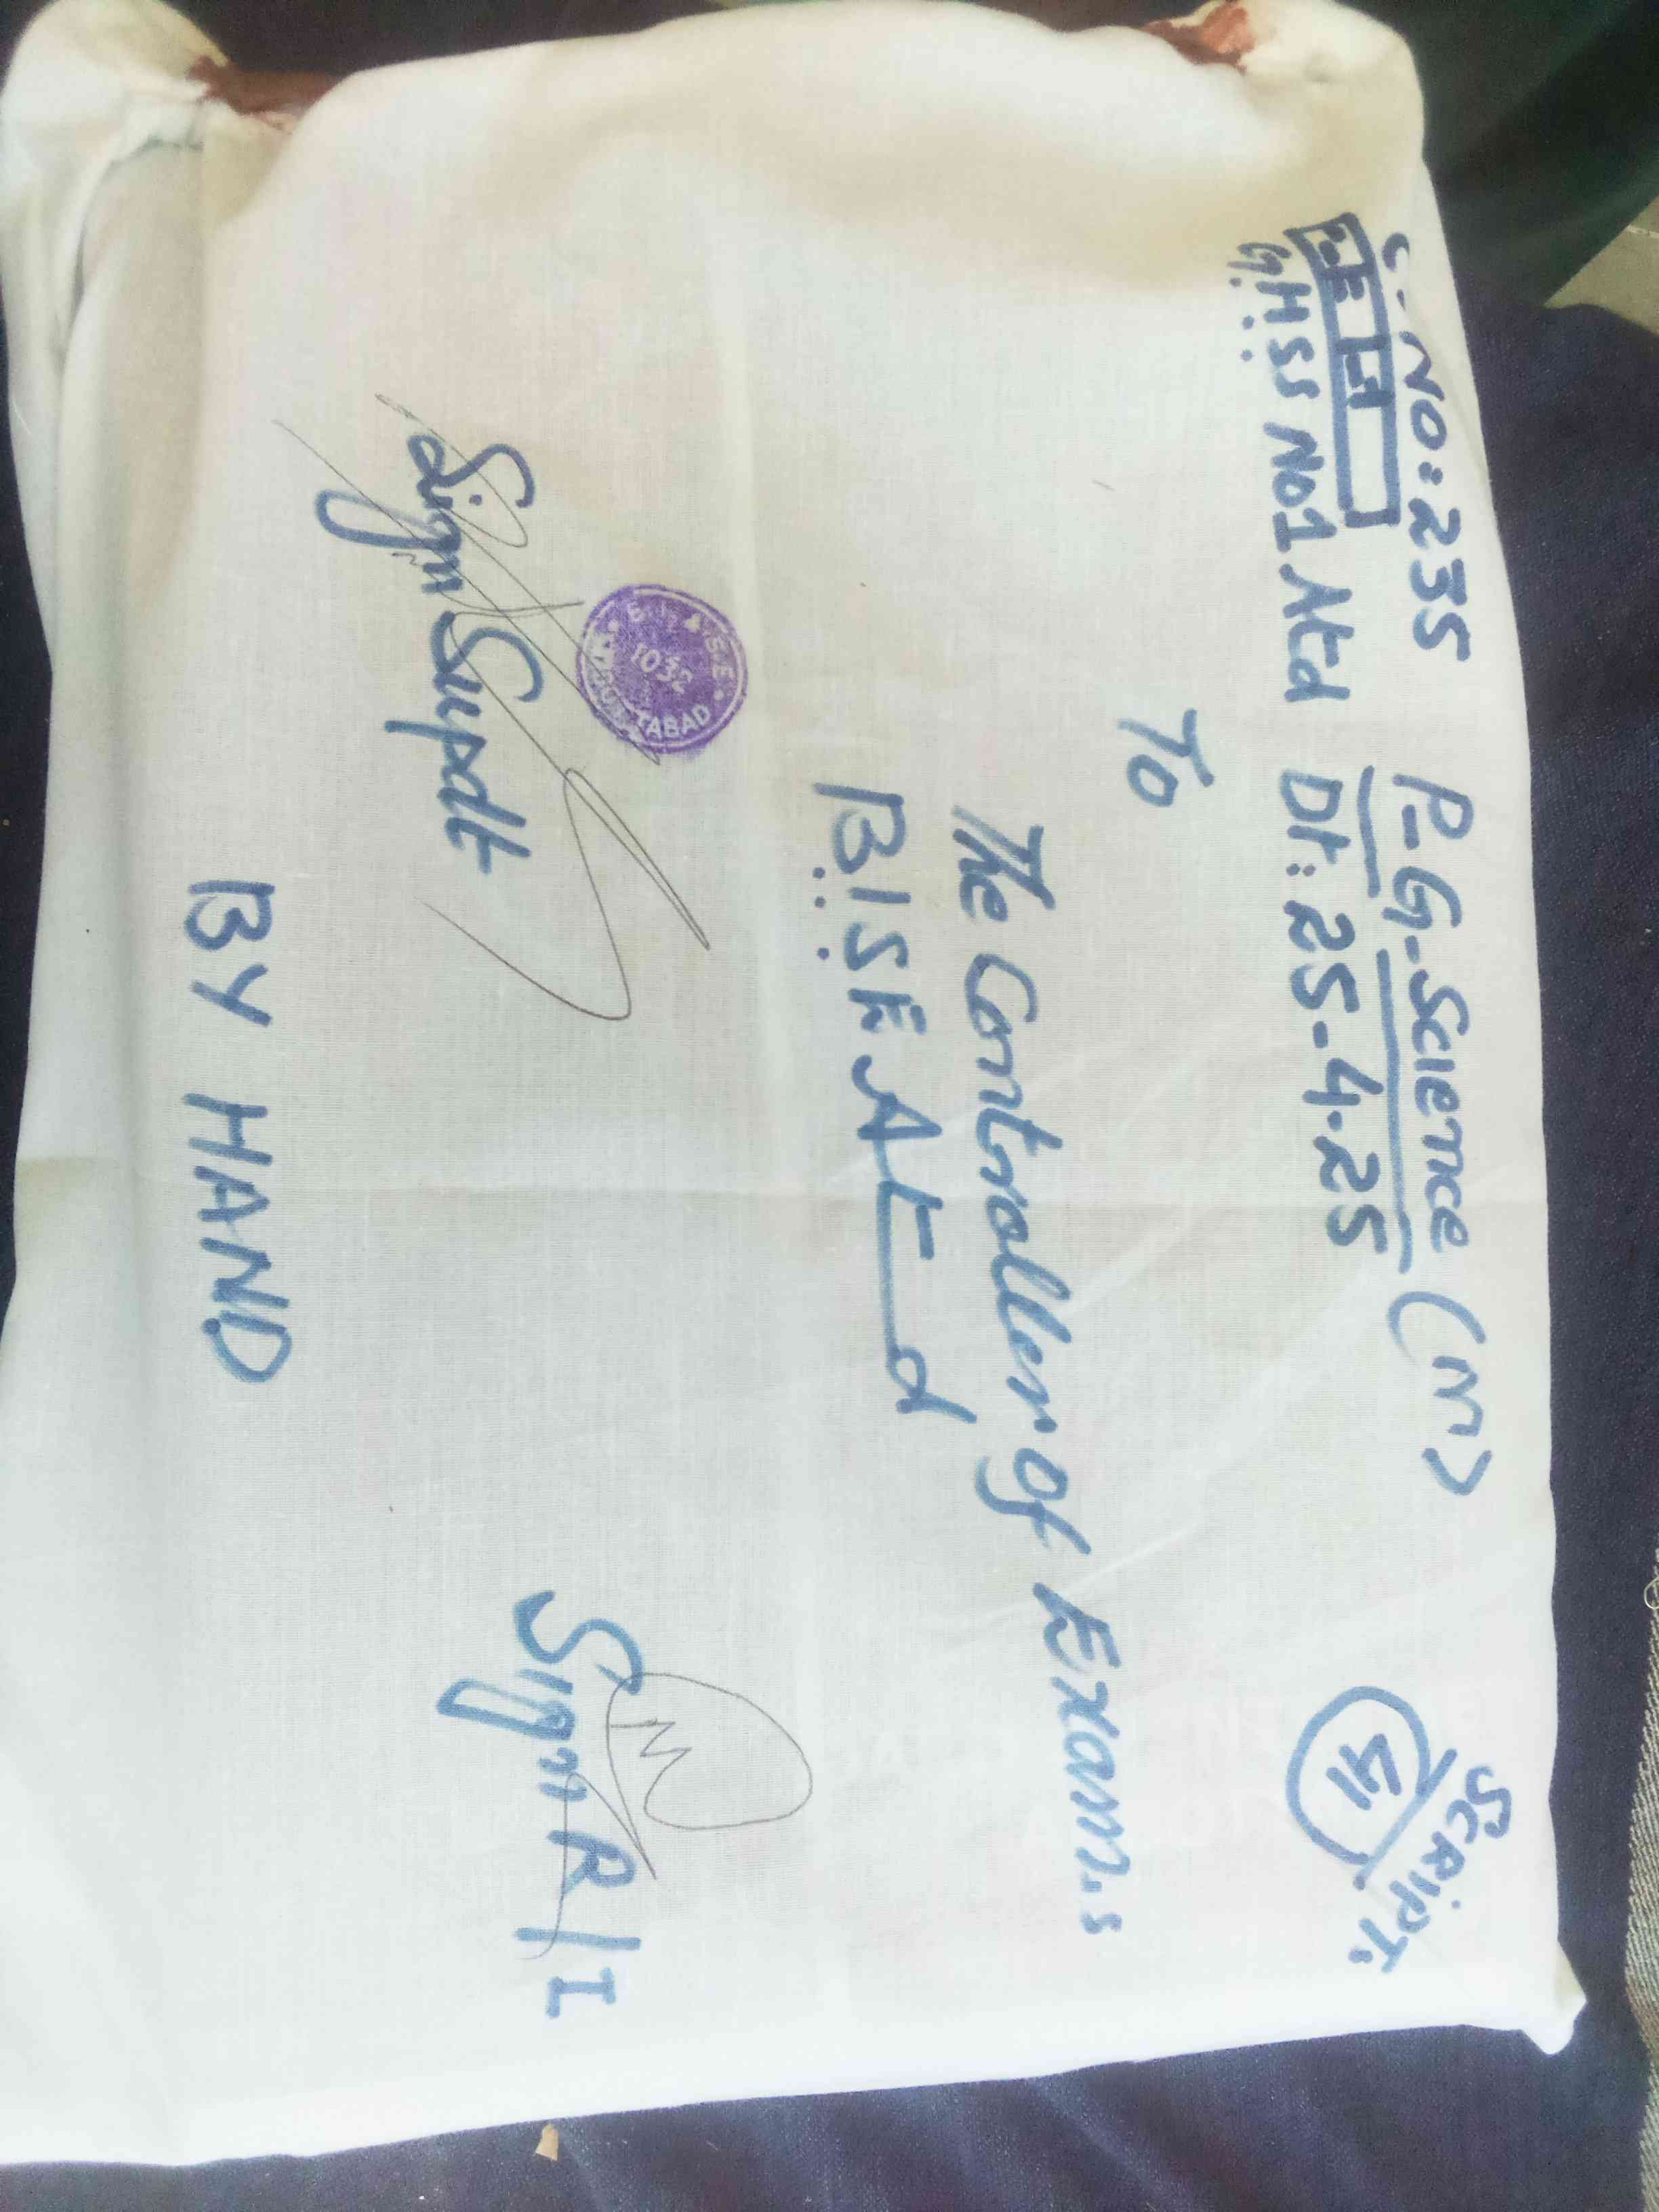 C. NO: 235 P-G. Science (M)
SCRIPT:
41
G.H.SS No1 Atd Dt: 25-4-25
To
The Controller of Exam.s
B.I.S.E Atd
B.I.& S.E.
1032
TABAD
Sign Supdt
Sign R/I
BY HAND